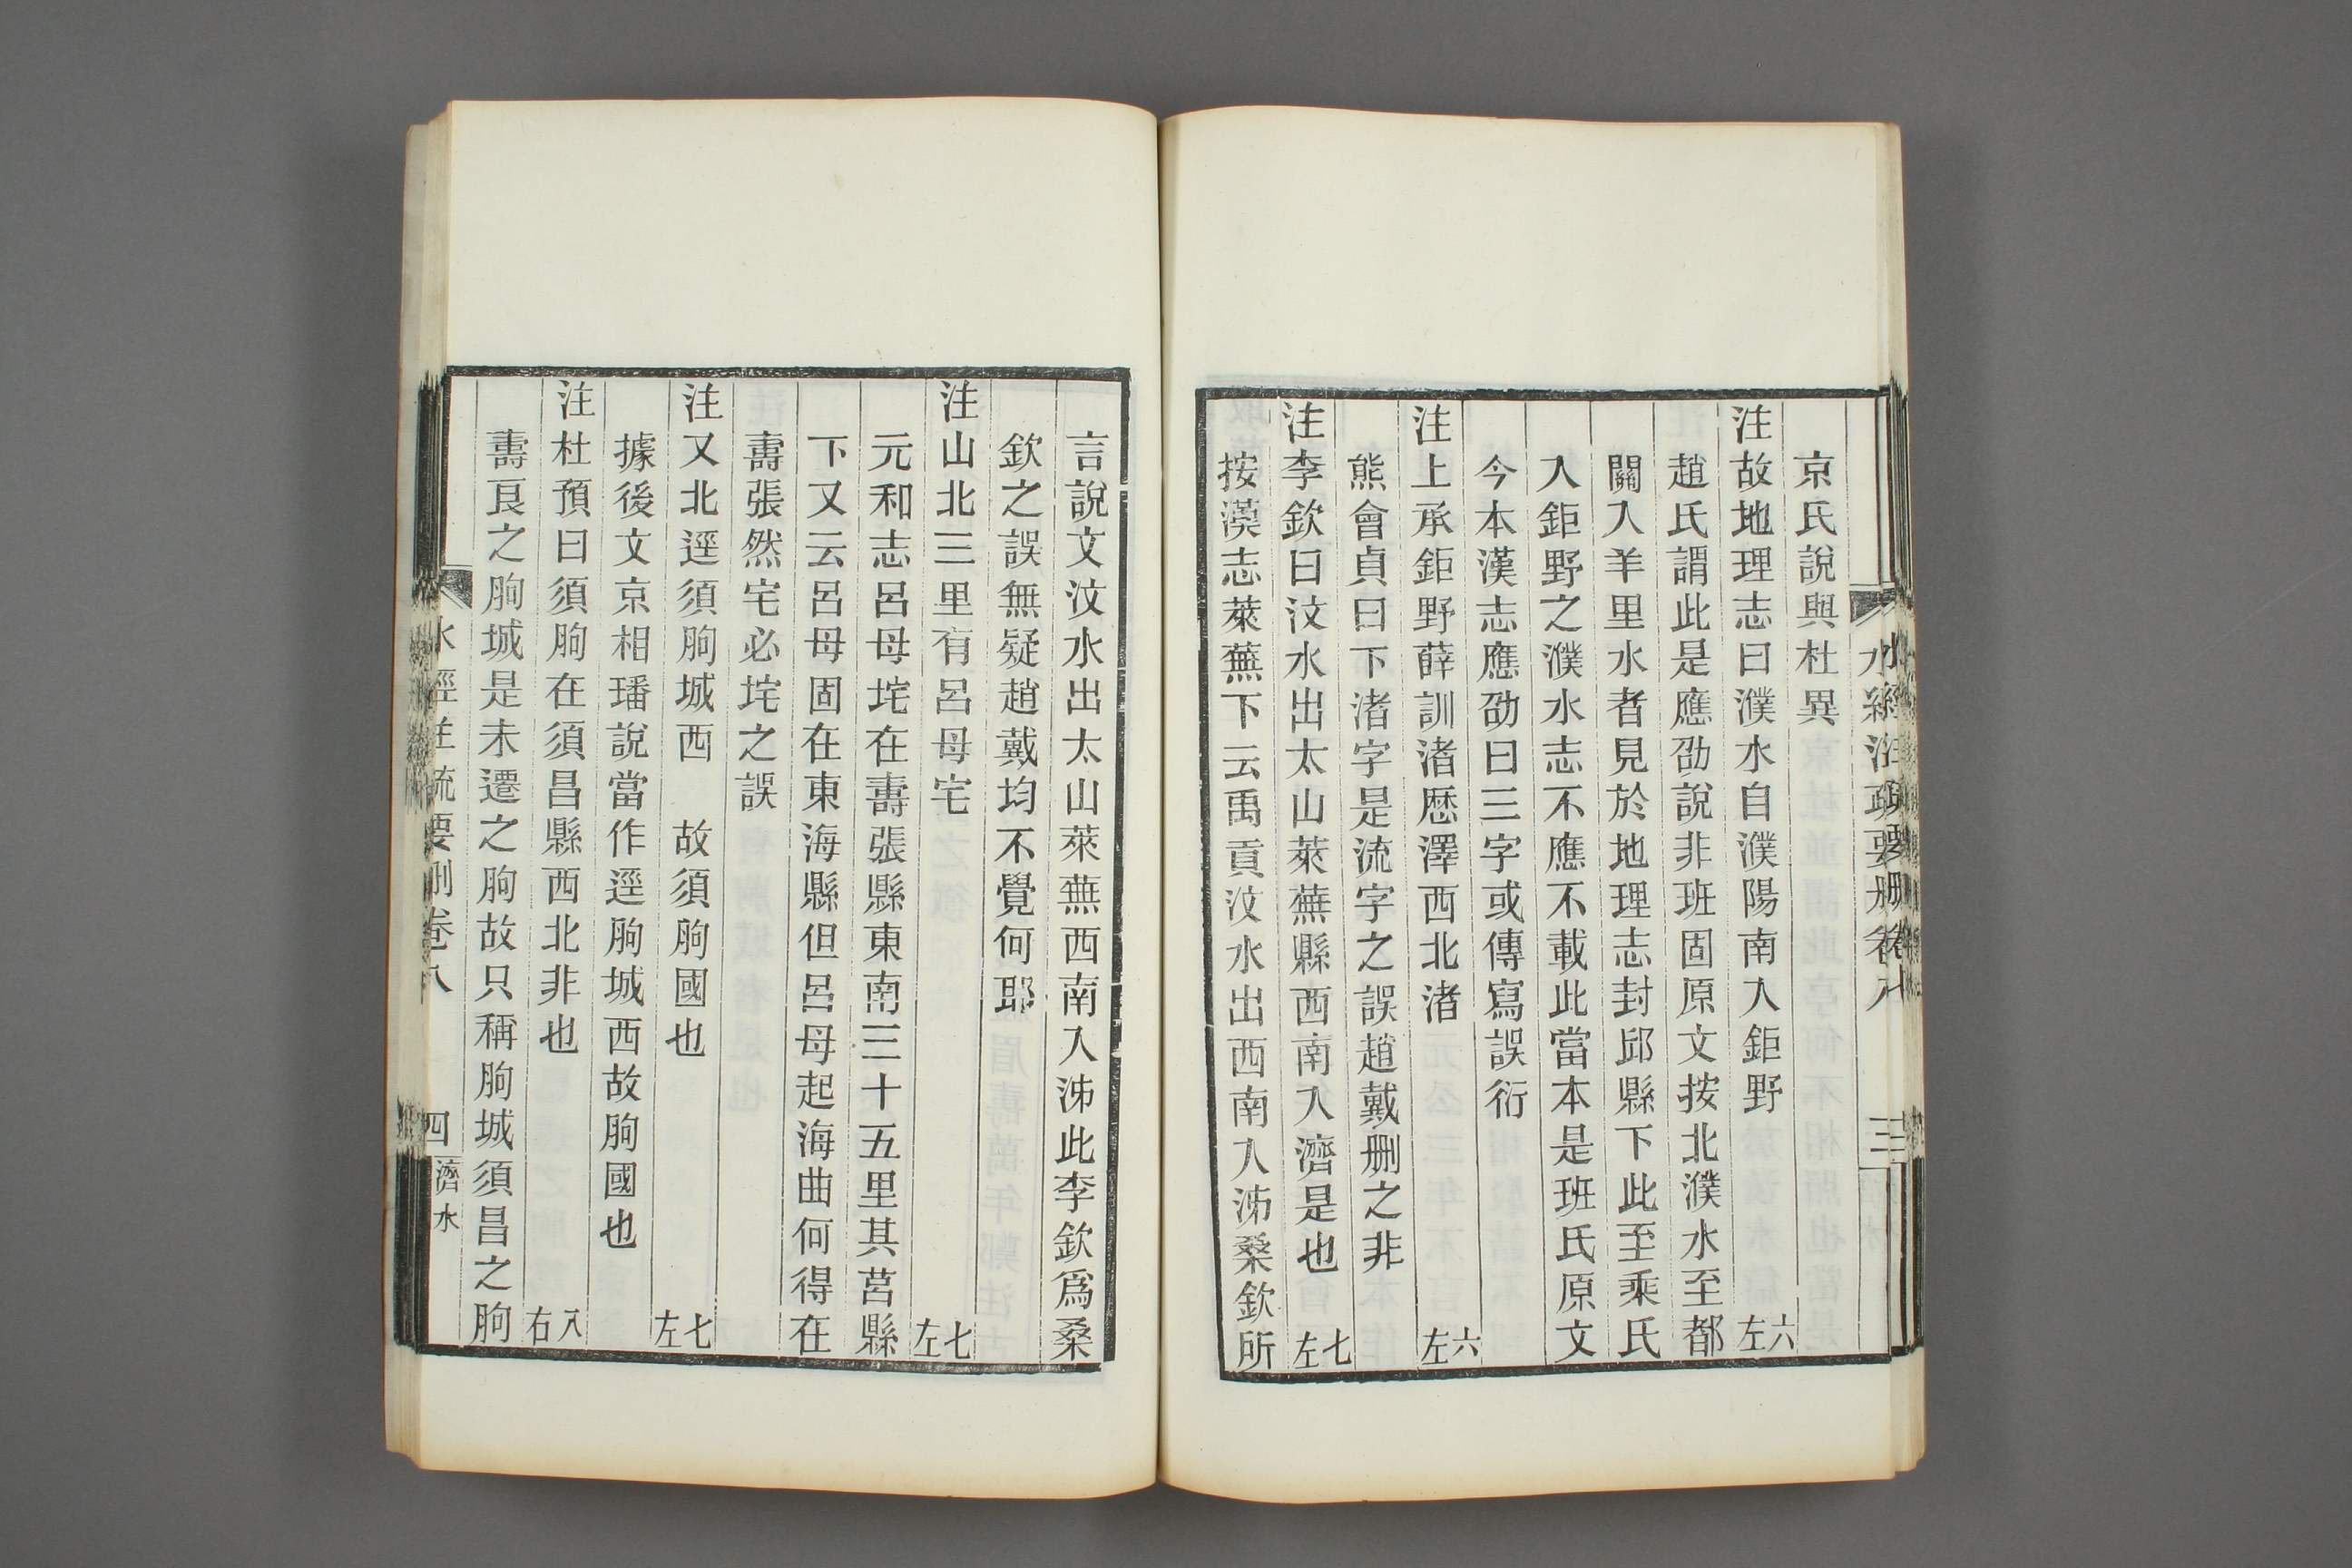 京氏說與杜異
注故地理志曰濮水自濮陽南入鉅野 六左
趙氏謂此是應劭說非班固原文按北濮水至都
關入羊里水者見於地理志封邱縣下此至乘氏
入鉅野之濮水志不應不載此當本是班氏原文
今本漢志應劭曰三字或傳寫誤衍
注上承鉅野薛訓渚歷澤西北渚 六左
熊會貞曰下渚字是流字之誤趙戴删之非
注李欽曰汶水出太山萊蕪縣西南入濟是也 七左
按漢志萊蕪下云禹貢汶水出西南入泲桑欽所
言說文汶水出太山萊蕪西南入泲此李欽爲桑
欽之誤無疑趙戴均不覺何耶
注山北三里有呂母宅 七左
元和志呂母垞在壽張縣東南三十五里其莒縣
下又云呂母固在東海縣但呂母起海曲何得在
壽張然宅必垞之誤
注又北逕須朐城西 故須朐國也 七左
據後文京相璠說當作逕朐城西故朐國也
注杜預曰須朐在須昌縣西北非也 八右
壽良之朐城是未遷之朐故只稱朐城須昌之朐
水經注疏要删卷八 四 濟水